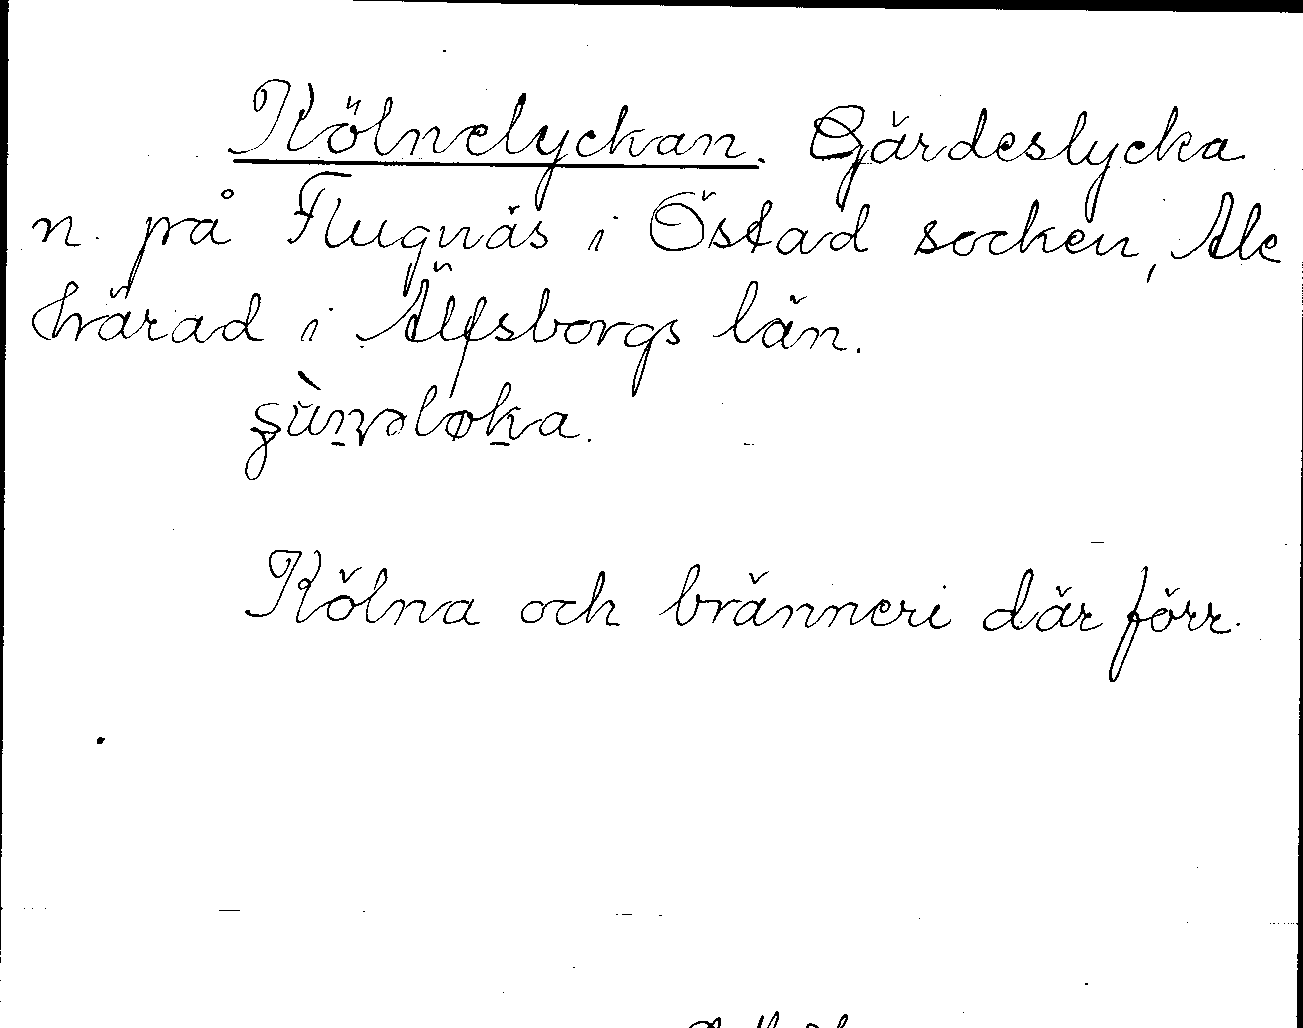 Kölnelyckan. Gärdeslycka
n. på Flugnäs i Östad socken, Ale
härad i Älfsborgs län.
Kölna och bränneri där förr.